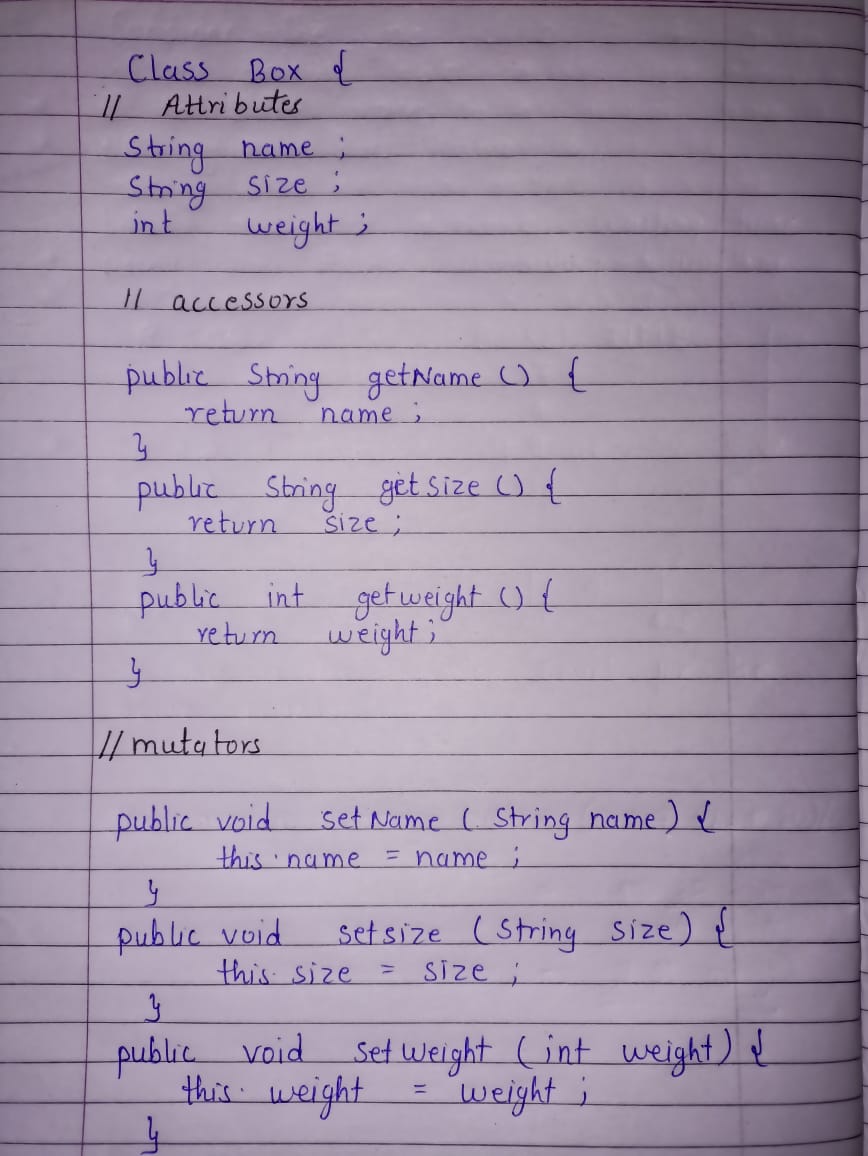 Class Box {
// Attributes
String name ;
String size ;
int weight ;
// accessors
public String getName () {
return name ;
}
public String getsize () {
return size ;
}
public int getweight () {
return weight ;
}
// mutators
public void setName ( String name ) {
this.name = name ;
}
public void setsize ( String size ) {
this.size = size ;
}
public void setweight ( int weight ) {
this.weight = weight ;
}